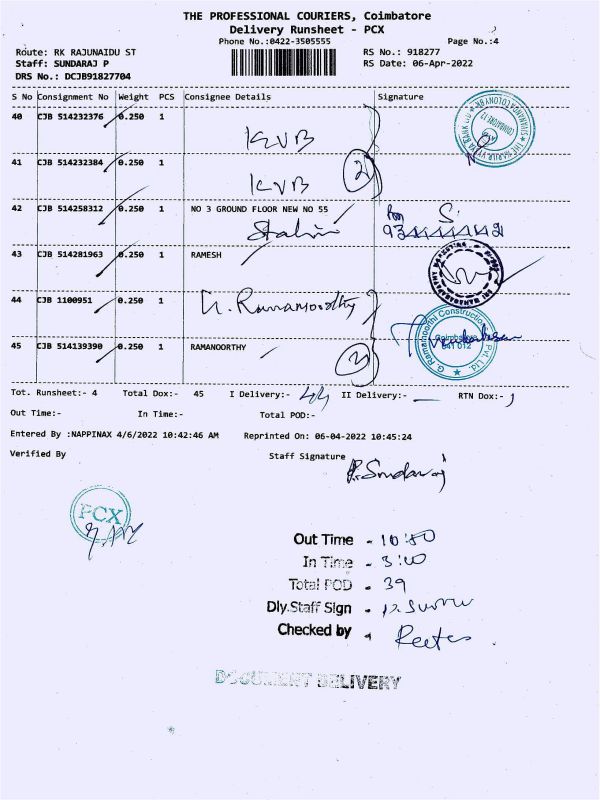 THE PROFESSIONAL COURIERS, Coimbatore
Delivery Runsheet - PCX
Phone No.:0422-3505555
Page No.:4
Route: RK RAJUNAIDU ST
RS No.: 918277
Staff: SUNDARAJ P
RS Date: 06-Apr-2022
DRS No.: DCJB91827704
S No Consignment No Weight PCS Consignee Details Signature
40 CJB 514232376 0.250 1 KVB
41 CJB 514232384 0.250 1 KVB
2
42 CJB 514258312 0.250 1 NO 3 GROUND FLOOR NEW NO 55
Stalin
43 CJB 514281963 0.250 1 RAMESH
44 CJB 1100951 0.250 1 G. Ramamoorthy
45 CJB 514139390 0.250 1 RAMANOORTHY
G. Ramamoorthi Constructions Pvt. Ltd.
Coimbatore
641 012
Tot. Runsheet:- 4 Total Dox:- 45 I Delivery:- 44 II Delivery:- — RTN Dox:- 1
Out Time:- In Time:- Total POD:-
Entered By :NAPPINAX 4/6/2022 10:42:46 AM Reprinted On: 06-04-2022 10:45:24
Verified By Staff Signature
P. Sundaraj
PCX
Out Time - 10:50
In Time - 3:00
Total POD - 39
Dly.Staff Sign -
Checked by -
DOCUMENT DELIVERY